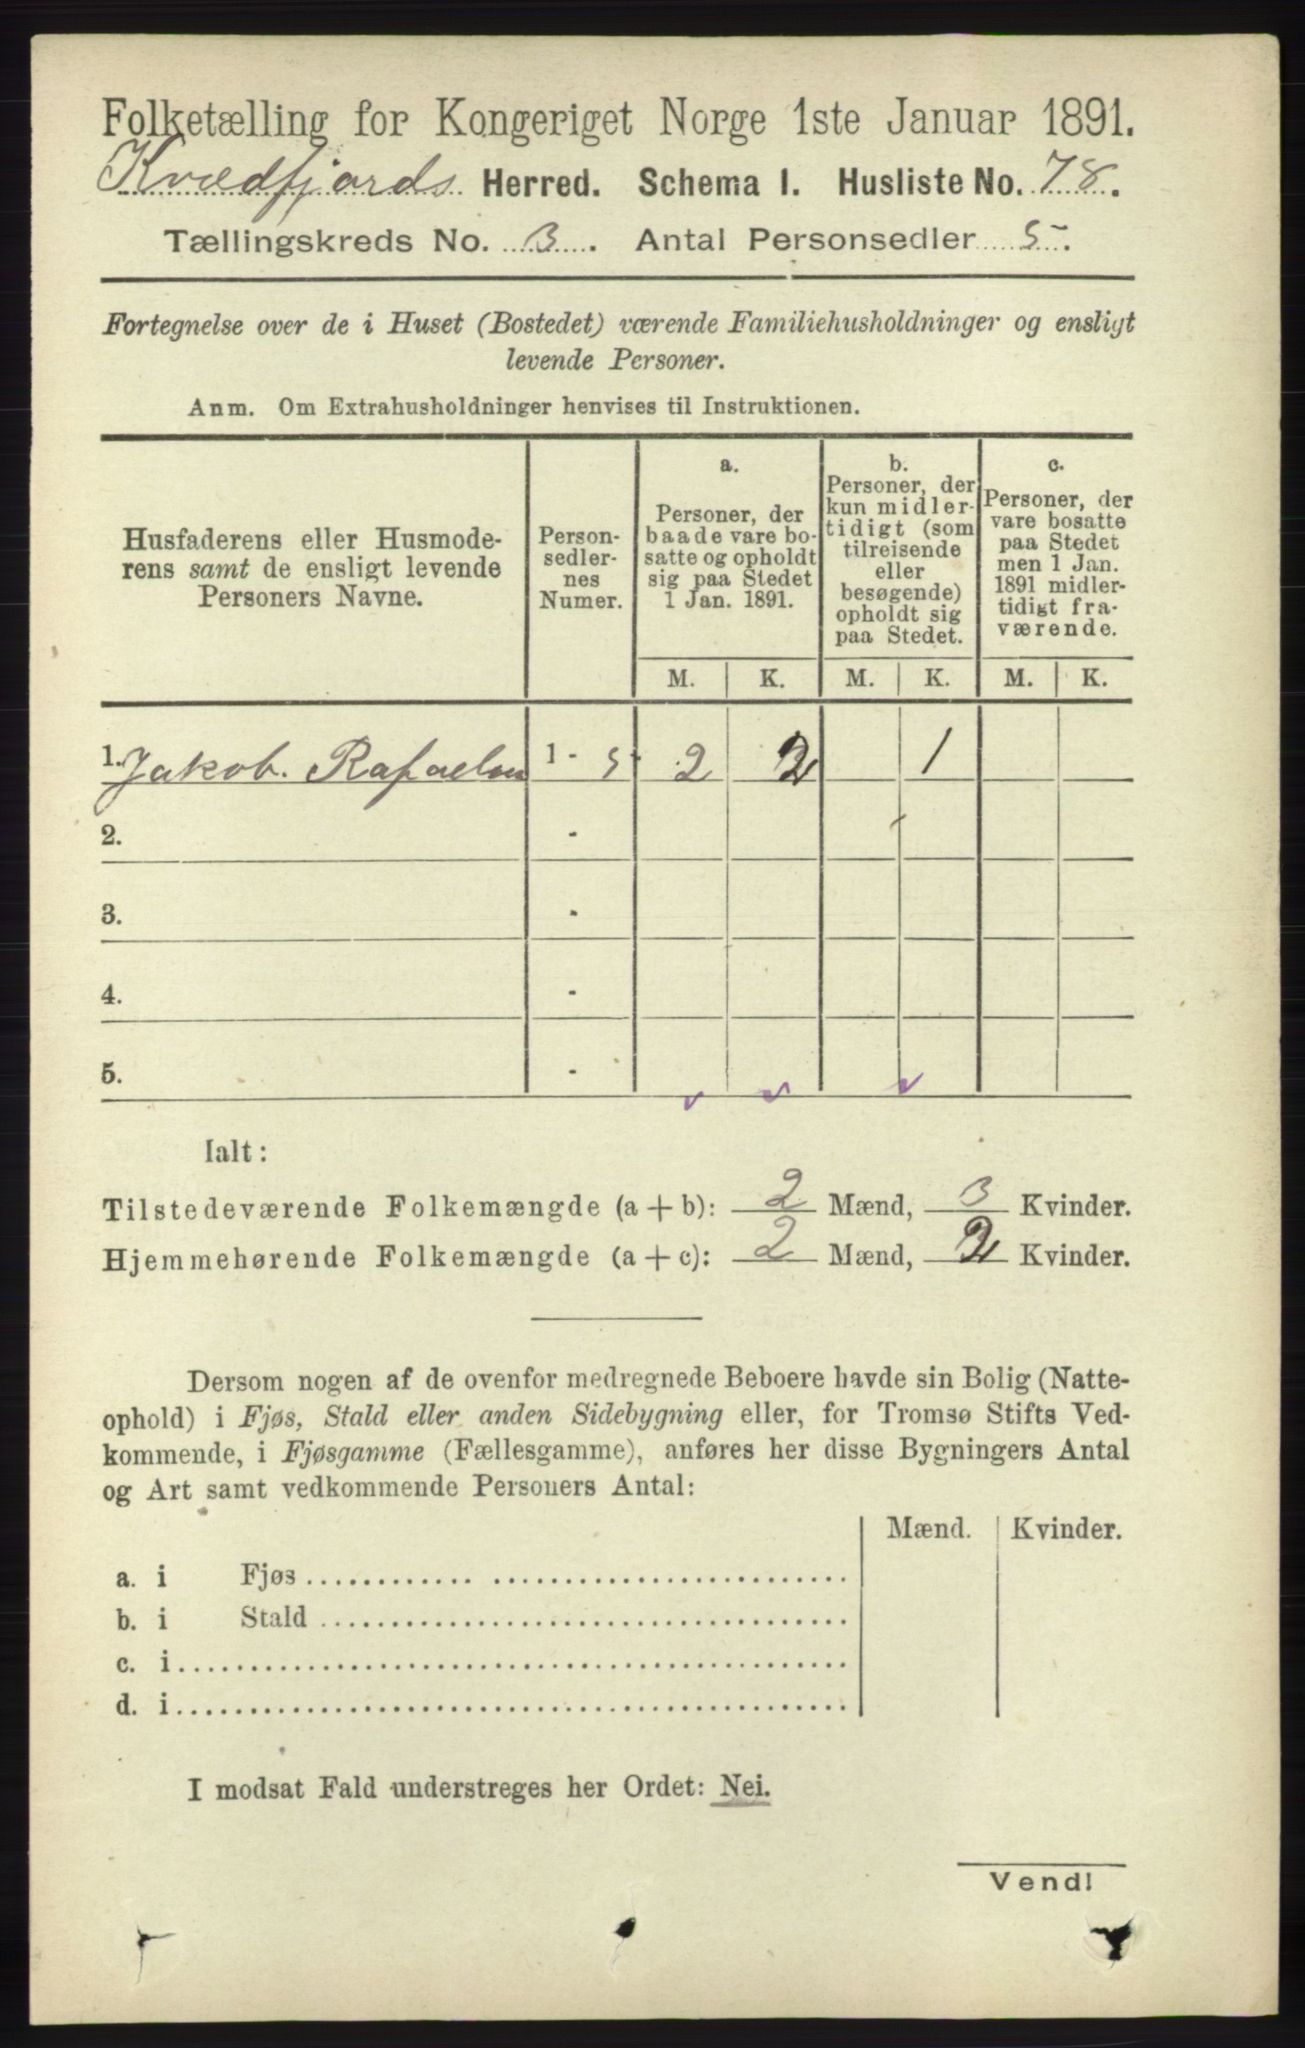 Folketælling for Kongeriget Norge 1ste Januar 1891.
Kvædfjords Herred. Schema 1. Husliste No. 78.
Tællingskreds No. 3. Antal Personsedler 5.
Fortegnelse over de i Huset (Bostedet) værende Familiehusholdninger og ensligt
levende Personer.
Anm. Om Extrahusholdninger henvises til Instruktionen.
Husfaderens eller Husmode-
rens samt de ensligt levende
Personers Navne.
Person-
sedler-
nes
Numer.
a.
Personer, der
baade vare bo-
satte og opholdt
sig paa Stedet
1 Jan. 1891.
b.
Personer, der
kun midler-
tidigt (som
tilreisende
eller
besøgende)
opholdt sig
paa Stedet.
c.
Personer, der
vare bosatte
paa Stedet
men 1 Jan.
1891 midler-
tidigt fra-
værende.
M. K. M. K. M. K.
1. Jakob. Rafaelsen 1 - 5 2 2 1
2. -
3. -
4. -
5. -
Ialt:
Tilstedeværende Folkemængde (a + b): 2 Mænd, 3 Kvinder.
Hjemmehørende Folkemængde (a + c): 2 Mænd, 2 Kvinder.
Dersom nogen af de ovenfor medregnede Beboere havde sin Bolig (Natte-
ophold) i Fjøs, Stald eller anden Sidebygning eller, for Tromsø Stifts Ved-
kommende, i Fjøsgamme (Fællesgamme), anføres her disse Bygningers Antal
og Art samt vedkommende Personers Antal:
Mænd. Kvinder.
a. i Fjøs
b. i Stald
c. i
d. i
I modsat Fald understreges her Ordet: Nei.
Vend!